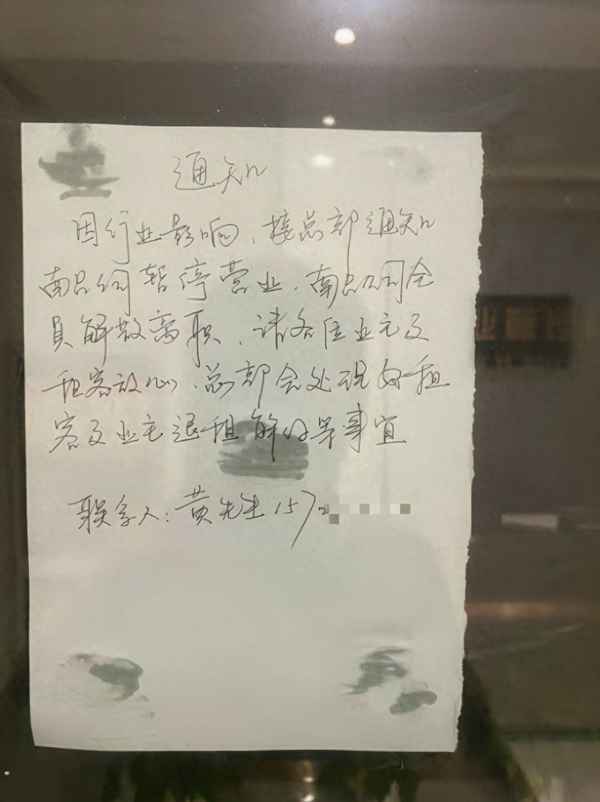 通知
因行业影响，接总部通知
南昌公司暂停营业，南昌公司全
员解散离职，请各位业主及
租客放心，总部会处理好租
客及业主退租解约等事宜
联系人：黄先生 157